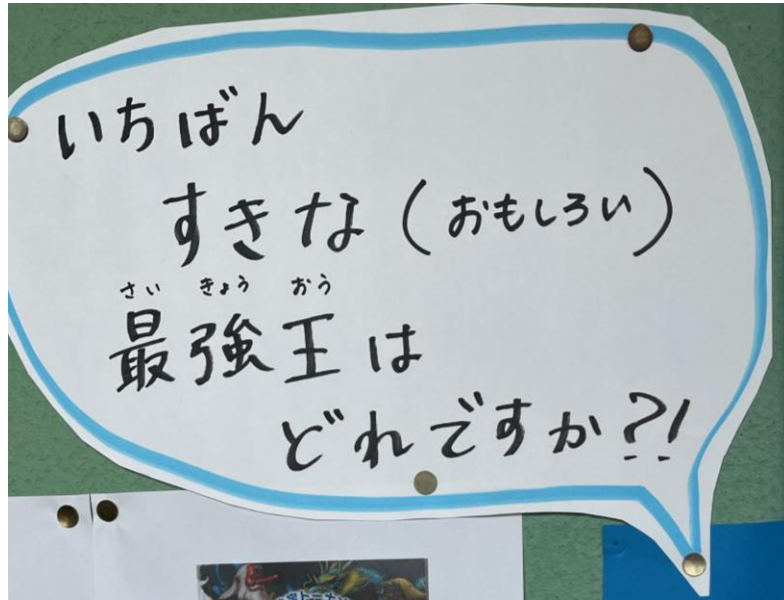 いちばん
すきな(おもしろい)
さいきょうおう
最強王は
どれですか?!